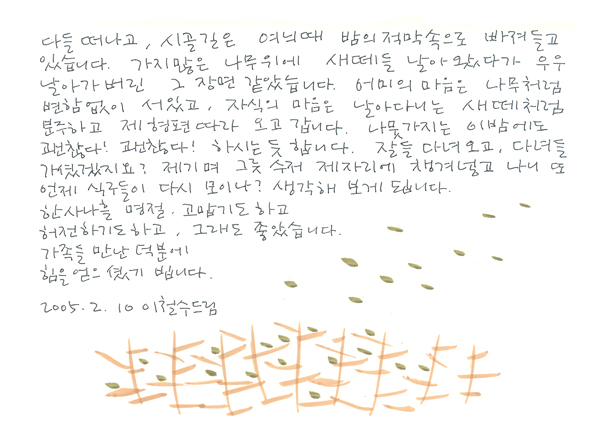 다들 떠나고, 시골길은 여늬때 밤의 적막속으로 빠져들고
있습니다. 가지많은 나무위에 새떼들 날아 왔다가 우우
날아가버린 그 장면 같았습니다. 어미의 마음은 나무처럼
변함없이 서있고, 자식의 마음은 날아다니는 새떼처럼
분주하고 제 형편따라 오고 갑니다. 나뭇가지는 이밤에도
괜찮다! 괜찮다! 하시는듯 합니다. 잘들 다녀오고, 다녀들
가셨겠지요? 제기며 그릇 수저 제자리에 챙겨넣고 나니 또
언제 식구들이 다시 모이나? 생각해 보게 됩니다.
한사나흘 명절. 고맙기도 하고
허전하기도하고, 그래도 좋았습니다.
가족들 만난 덕분에
힘을 얻으셨기 빕니다.
2005.2.10 이철수드림